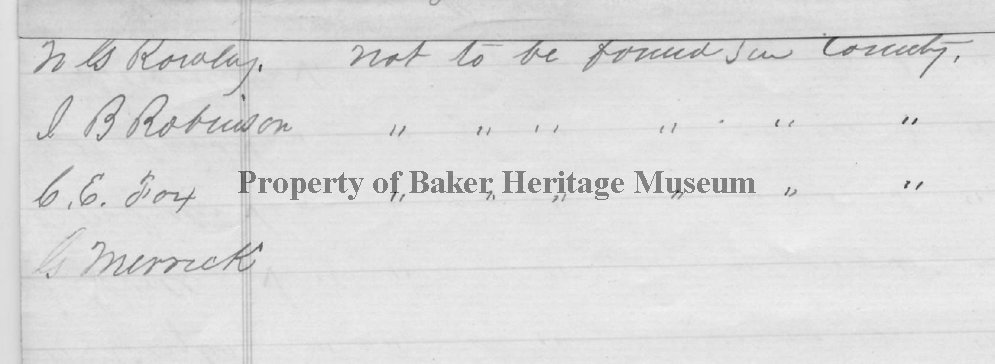 N G Rowley. not to be found in County.
I B Robinson " " " " " "
C. E. Fox " " " " " "
Property of Baker Heritage Museum
G Merrick